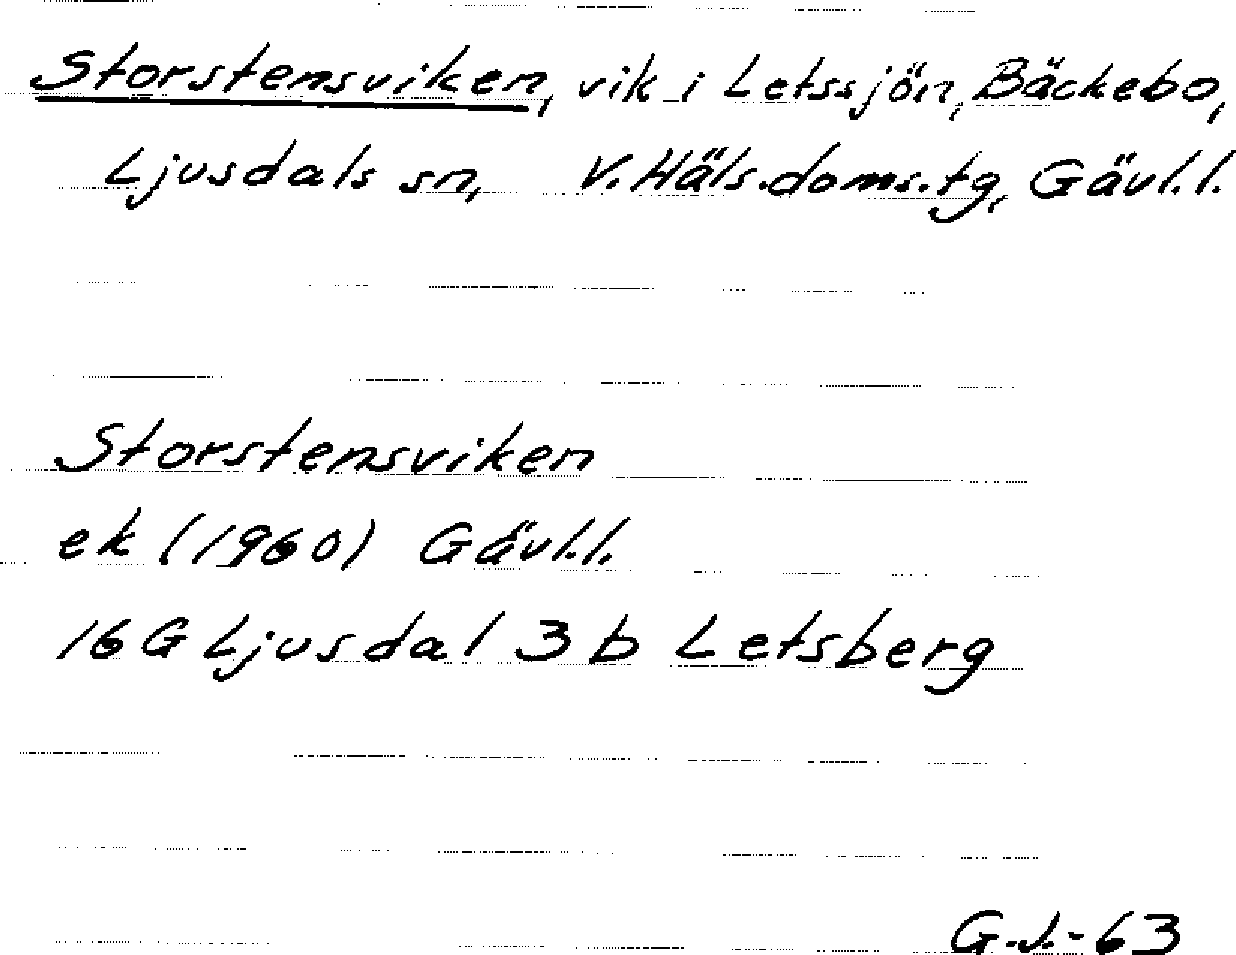 Storstensviken, vik i Letssjön, Bäckebo,
Ljusdals sn, V. Häls. doms. tg, Gävl. l.
Storstensviken
ek (1960) Gävl. l.
16 G Ljusdal 3 b Letsberg
G.J.-63